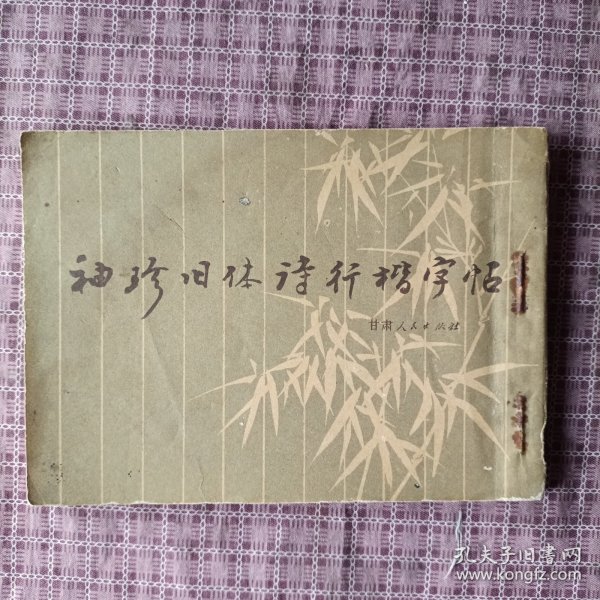 袖珍旧体诗行楷字帖
甘肃人民出版社
孔夫子旧書网
www.kongfz.com